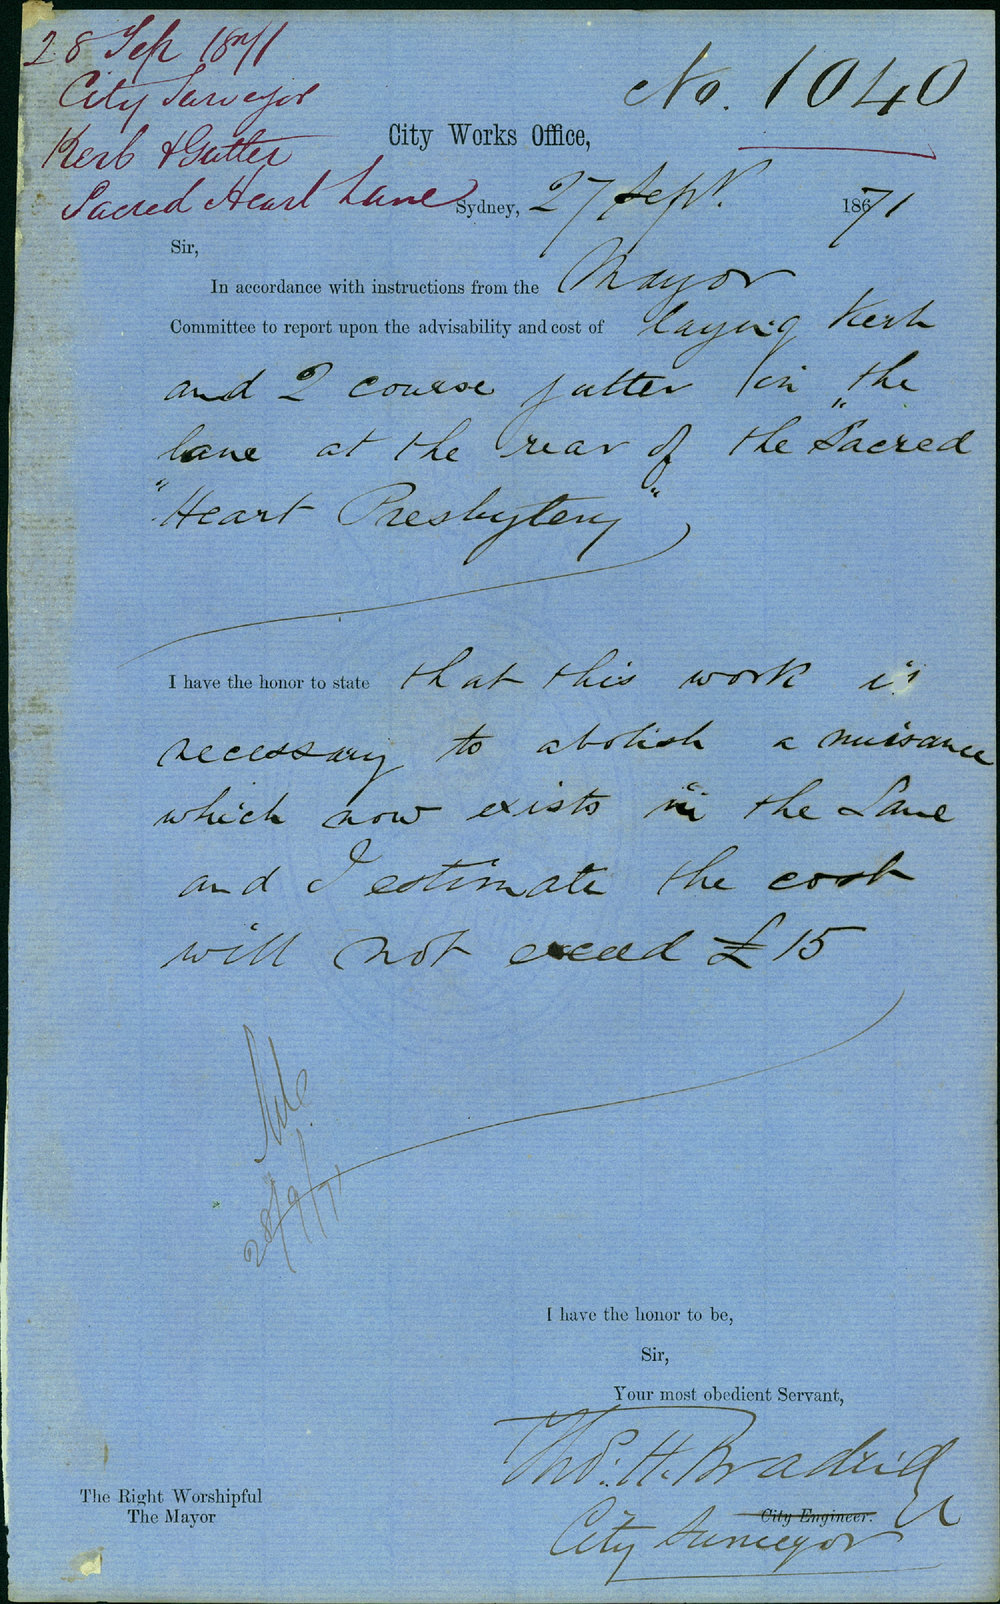 28 Sep 1871
City Surveyor
Kerb & Gutter
Sacred Heart Lane
No. 1040
City Works Office,
Sydney, 27 Sept. 1871
Sir,
In accordance with instructions from the Mayor
Committee to report upon the advisability and cost of laying Kerb
and 2 course gutter in the
lane at the rear of the "Sacred
"Heart Presbytery"
I have the honor to state that this work is
necessary to abolish a nuisance
which now exists in the Lane
and I estimate the cost
will not exceed £15
28/9/71
I have the honor to be,
Sir,
Your most obedient Servant,
Thos. H. Bradrid
City Engineer.
City Surveyor
The Right Worshipful
The Mayor